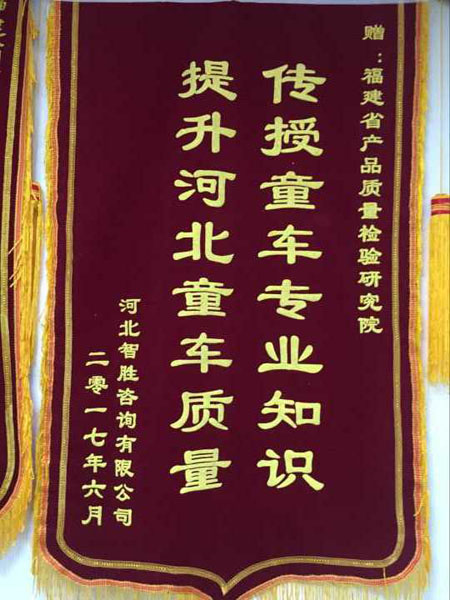 赠：福建省产品质量检验研究院
传授童车专业知识
提升河北童车质量
河北智胜咨询有限公司
二零一七年六月